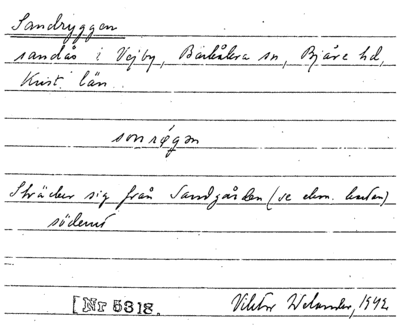 Sandryggen
sandås i Vejby, Barkåkra sn, Bjäre hd,
Krist. län.
sonrǿgən
Sträcker sig från Sandgården (se ekon. kartan)
söderut
[Nr 5318.
Viktor Welander, 1942